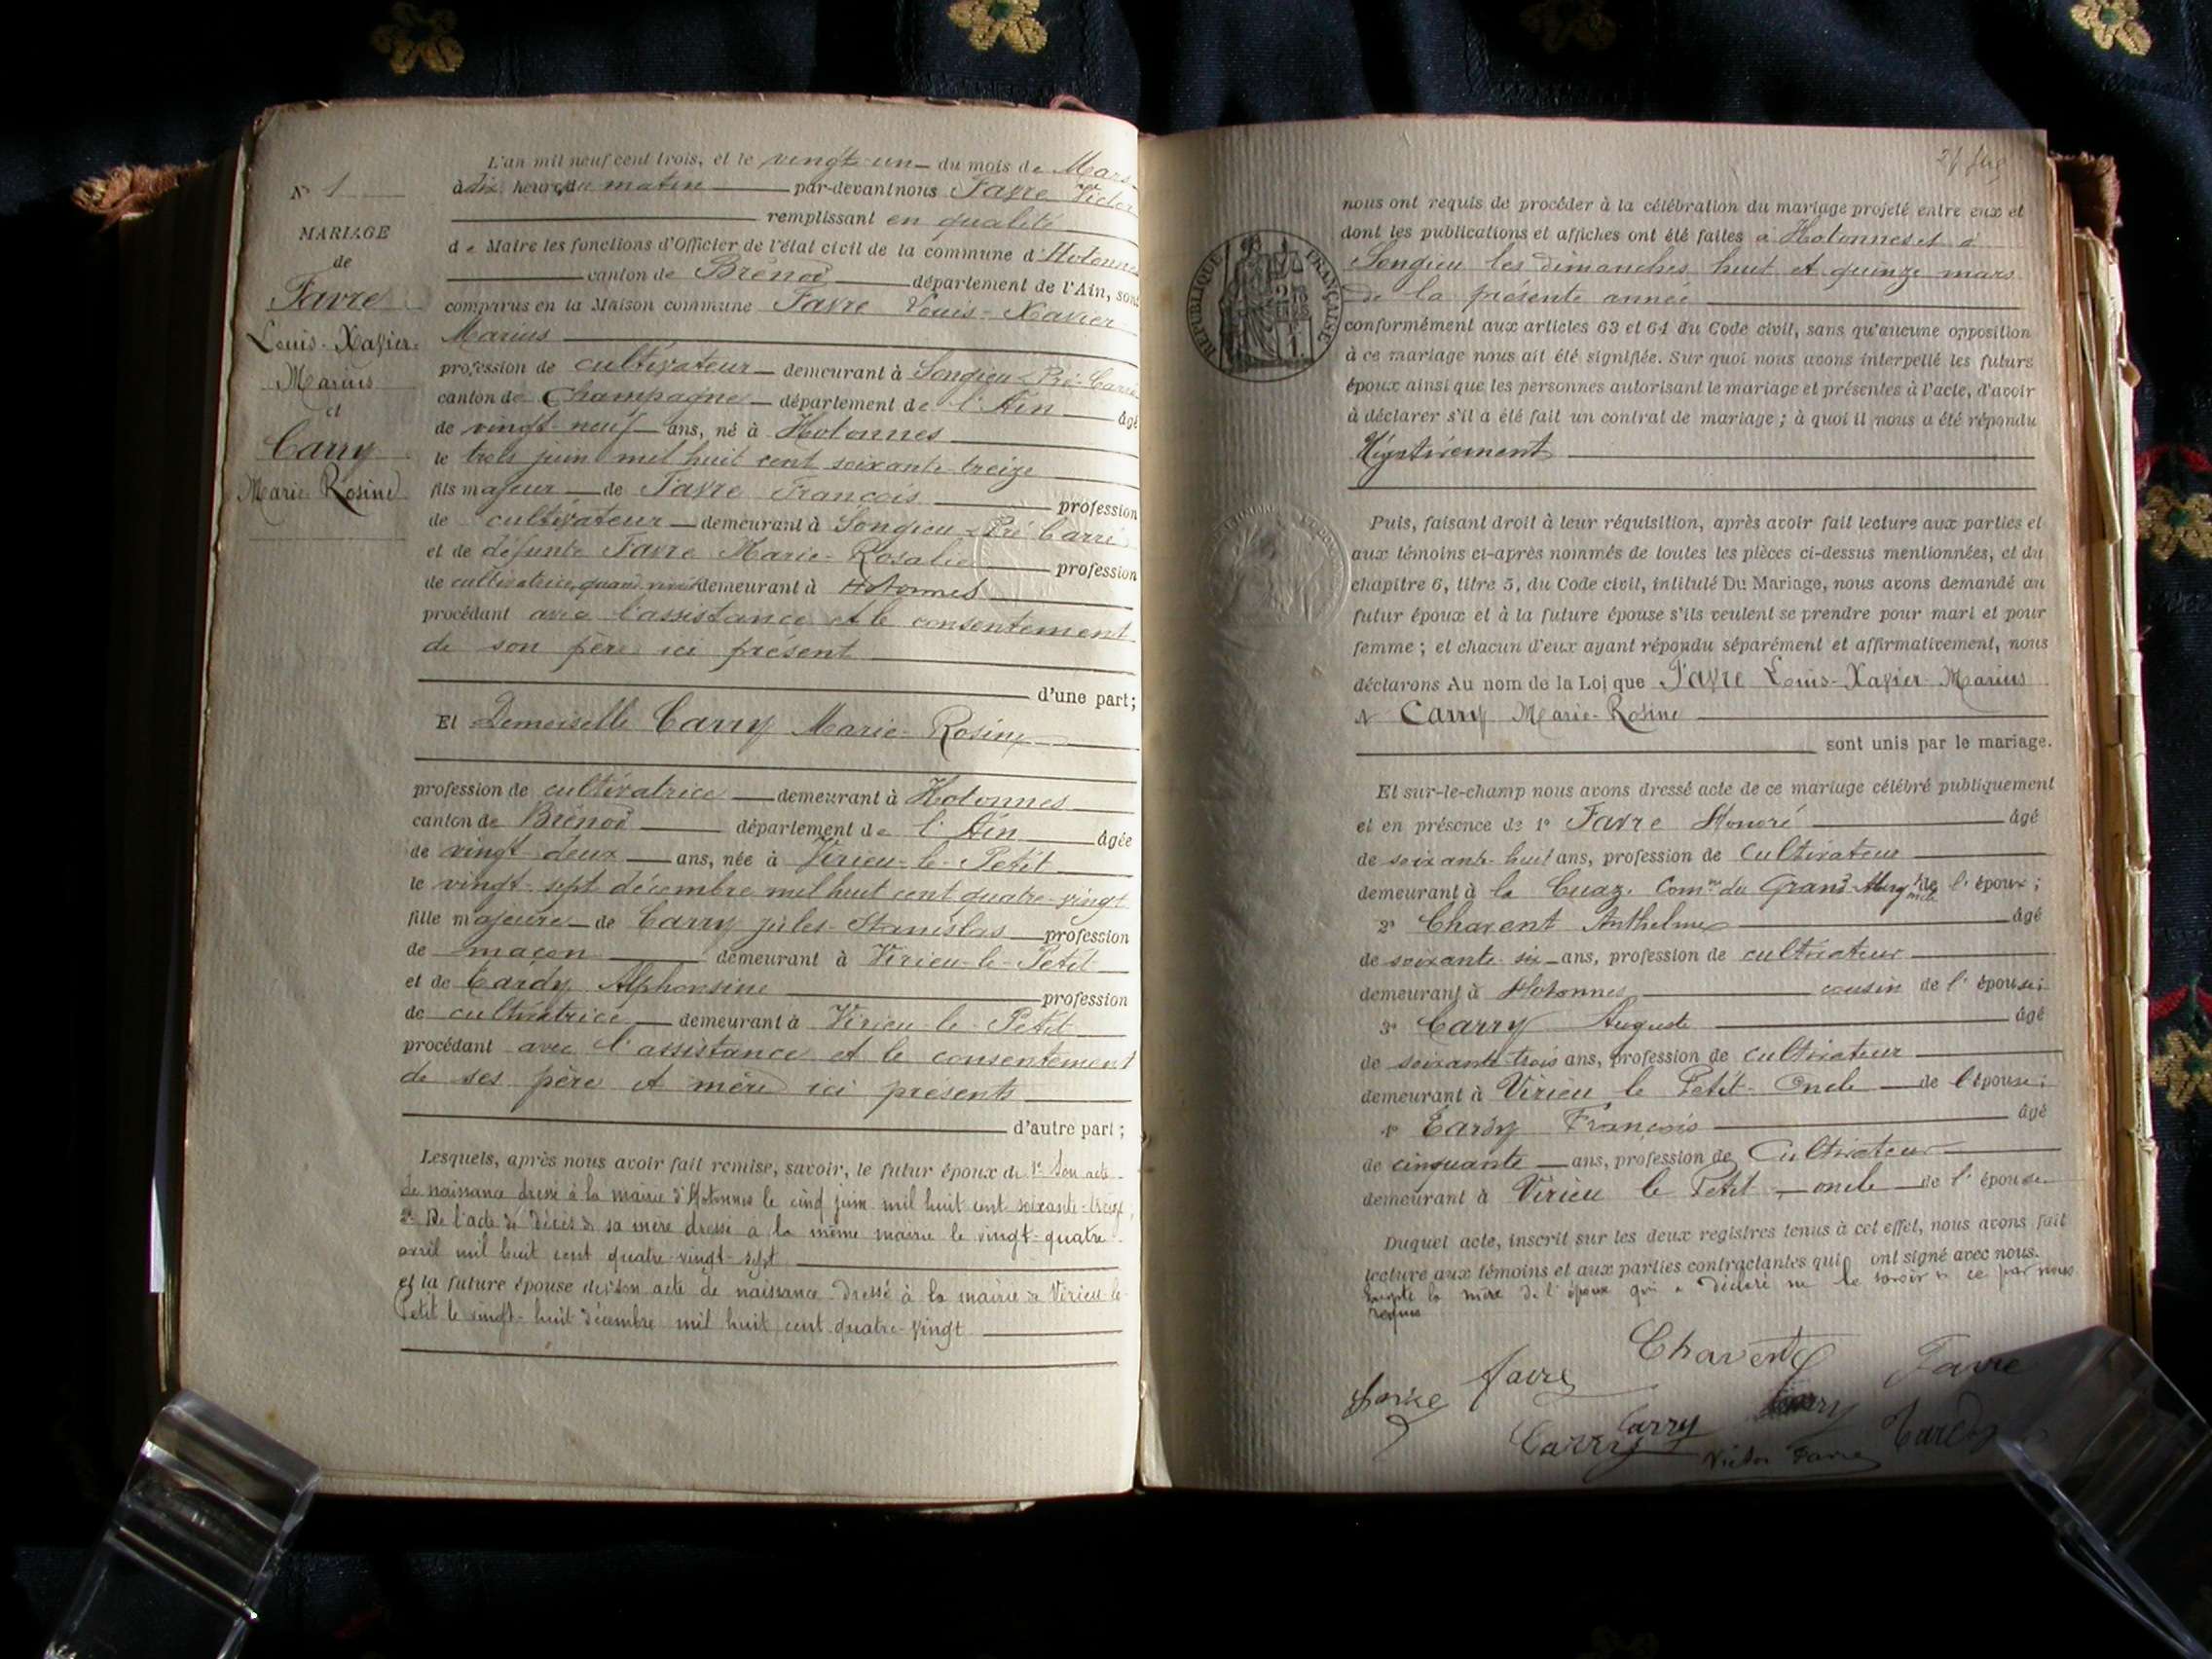 N° 1
MARIAGE
de
Favre
Louis-Xavier-
Marius
et
Carry
Marie Rosine
L'an mil neuf cent trois, et le vingt-un du mois de Mars
à dix heures du matin par-devant nous Favre Victor
remplissant en qualité
de Maire les fonctions d'Officier de l'état civil de la commune d'Hotonnes
canton de Brénod département de l'Ain, sont
comparus en la Maison commune Favre Louis-Xavier
Marius
profession de cultivateur demeurant à Songieu Pré-Carré
canton de Champagne département de l'Ain âgé
de vingt-neuf ans, né à Hotonnes
le trois juin mil huit cent soixante-treize
fils majeur de Favre François profession
de cultivateur demeurant à Songieu Pré Carré
et de défunte Favre Marie-Rosalie profession
de cultivatrice quand vivait demeurant à Hotonnes
procédant avec l'assistance et le consentement
de son père ici présent
d'une part;
Et Demoiselle Carry Marie-Rosine
profession de cultivatrice demeurant à Hotonnes
canton de Brénod département de l'Ain âgée
de vingt-deux ans, née à Virieu-le-Petit
le vingt-sept décembre mil huit cent quatre-vingt
fille majeure de Carry Jules-Stanislas profession
de maçon demeurant à Virieu-le-Petit
et de Tardy Alphonsine profession
de cultivatrice demeurant à Virieu-le-Petit
procédant avec l'assistance et le consentement
de ses père et mère ici présents
d'autre part;
Lesquels, après nous avoir fait remise, savoir, le futur époux de 1° Son acte
de naissance dressé à la mairie d'Hotonnes le cinq juin mil huit cent soixante-treize,
2° De l'acte de décès de sa mère dressé à la même mairie le vingt-quatre
avril mil huit cent quatre-vingt-sept
et la future épouse de son acte de naissance dressé à la mairie de Virieu-le-
Petit le vingt-huit décembre mil huit cent quatre-vingt
nous ont requis de procéder à la célébration du mariage projeté entre eux et
dont les publications et affiches ont été faites à Hotonnes et à
Songieu les dimanches huit et quinze mars
de la présente année
conformément aux articles 63 et 64 du Code civil, sans qu'aucune opposition
à ce mariage nous ait été signifiée. Sur quoi nous avons interpellé les futurs
époux ainsi que les personnes autorisant le mariage et présentes à l'acte, d'avoir
à déclarer s'il a été fait un contrat de mariage; à quoi il nous a été répondu
Négativement
RÉPUBLIQUE FRANÇAISE
Puis, faisant droit à leur réquisition, après avoir fait lecture aux parties et
aux témoins ci-après nommés de toutes les pièces ci-dessus mentionnées, et du
chapitre 6, titre 5, du Code civil, intitulé Du Mariage, nous avons demandé au
futur époux et à la future épouse s'ils veulent se prendre pour mari et pour
femme; et chacun d'eux ayant répondu séparément et affirmativement, nous
déclarons Au nom de la Loi que Favre Louis-Xavier-Marius
et Carry Marie-Rosine
sont unis par le mariage.
Et sur-le-champ nous avons dressé acte de ce mariage célébré publiquement
et en présence de 1° Favre Honoré âgé
de soixante-huit ans, profession de cultivateur
demeurant à la Cuaz. Com^ne du Grand-Abergement de l'époux;
2° Charent Anthelme âgé
de soixante-six ans, profession de cultivateur
demeurant à Hotonnes cousin de l'épouse;
3° Carry Auguste âgé
de soixante trois ans, profession de cultivateur
demeurant à Virieu le Petit Oncle de l'épouse;
4° Tardy François âgé
de cinquante ans, profession de Cultivateur
demeurant à Virieu le Petit oncle de l'épouse
Duquel acte, inscrit sur les deux registres tenus à cet effet, nous avons fait
lecture aux témoins et aux parties contractantes qui ont signé avec nous.
excepté la mère de l'épouse qui a déclaré ne le savoir de ce par nous
requis
Favre Chavent Favre
Carry Carry Carry Tardy
Victor Favre